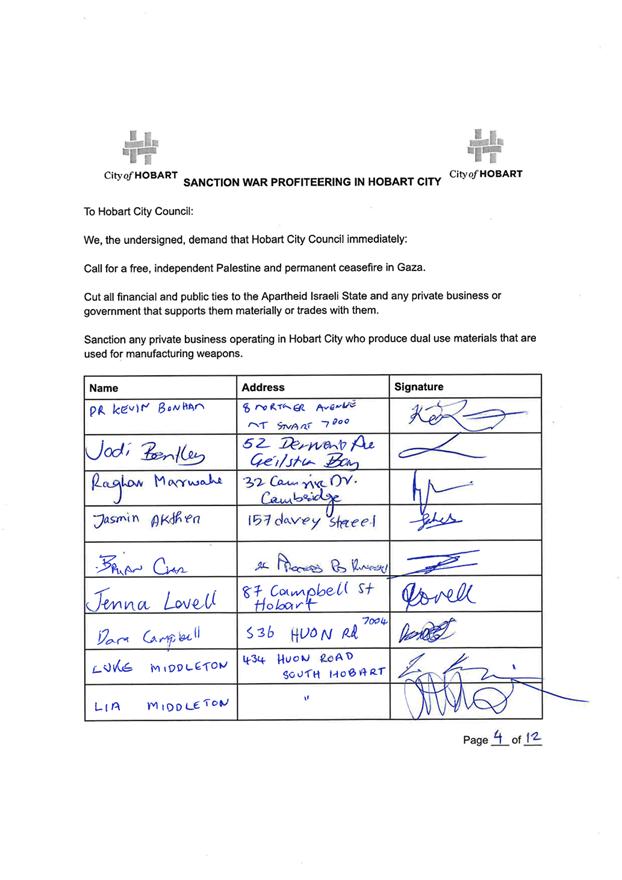 City of HOBART
City of HOBART
SANCTION WAR PROFITEERING IN HOBART CITY
To Hobart City Council:
We, the undersigned, demand that Hobart City Council immediately:
Call for a free, independent Palestine and permanent ceasefire in Gaza.
Cut all financial and public ties to the Apartheid Israeli State and any private business or
government that supports them materially or trades with them.
Sanction any private business operating in Hobart City who produce dual use materials that are
used for manufacturing weapons.
Name Address Signature
DR KEVIN BONHAM 8 AVENUE
MT STUART 7000
Jodi Bentley 52 Derwent Ave
Geilston Bay
Raghav Marwaha 32 Dr.
Cambridge
Jasmin Akther 157 davey street
BRIAN
Jenna Lovell 87 Campbell St
Hobart
Lovell
Dara Campbell 536 HUON RD 7004
LUKE MIDDLETON 434 HUON ROAD
SOUTH HOBART
LIA MIDDLETON "
Page 4 of 12